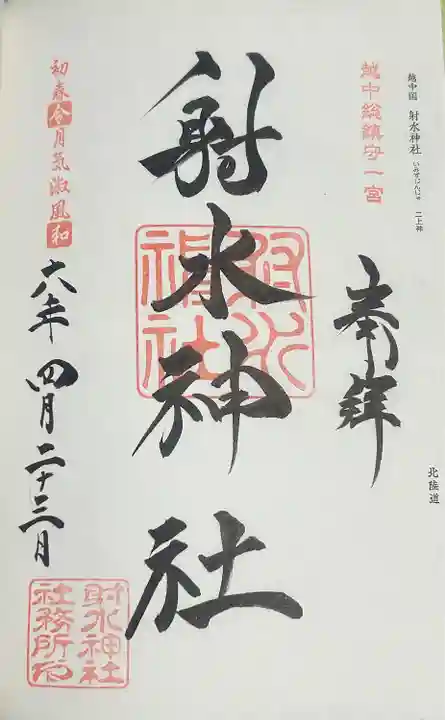 越中国 射水神社 いみずじんじゃ 二上神
北陸道
越中総鎮守一宮
奉拝
射水神社
射水神社
初春令月気淑風和
六年四月二十三日
射水神社
社務所印